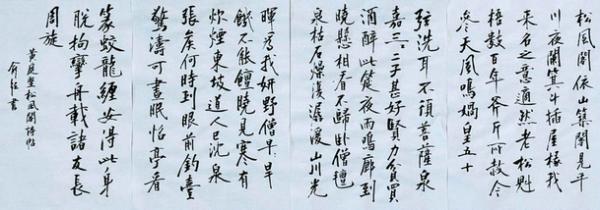 松風閣依山築閣見平
川夜闌箕斗插屋椽我
來名之意適然老松魁
梧數百年斧斤所赦今
參天風鳴媧皇五十
弦洗耳不須菩薩泉
嘉三二子甚好賢力貧買
酒醉此筵夜雨鳴廊到
曉懸相看不歸卧僧氈
泉枯石燥復潺湲山川光
暉為我妍野僧早旱
餓不能饘曉見寒有
炊煙東坡道人已沈泉
張侯何時到眼前釣臺
驚濤可晝眠怡亭看
篆蛟龍纏安得此身
脫拘攣舟載諸友長
周旋
黃庭堅松風閣詩帖
書